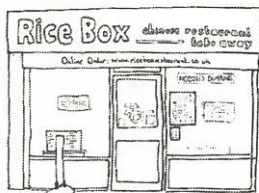 Rice Box chinese restaurant
take away
Online Order: www.riceboxrestaurant.co.uk